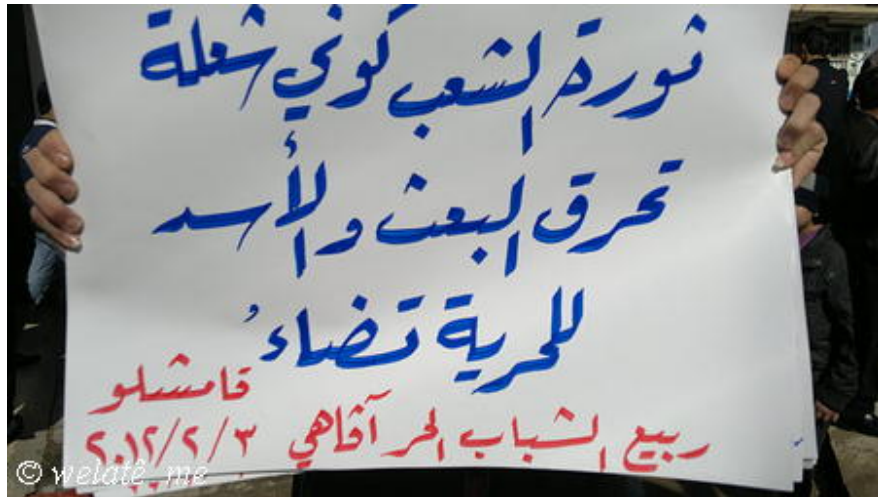 ثورة الشعب كوني شعلة
تحرق البعث والأسد
للحرية تضاءُ
قامشلو
ربيع الشباب الحر آڤاهي ٢٠١٢/٢/٣
© welatê me